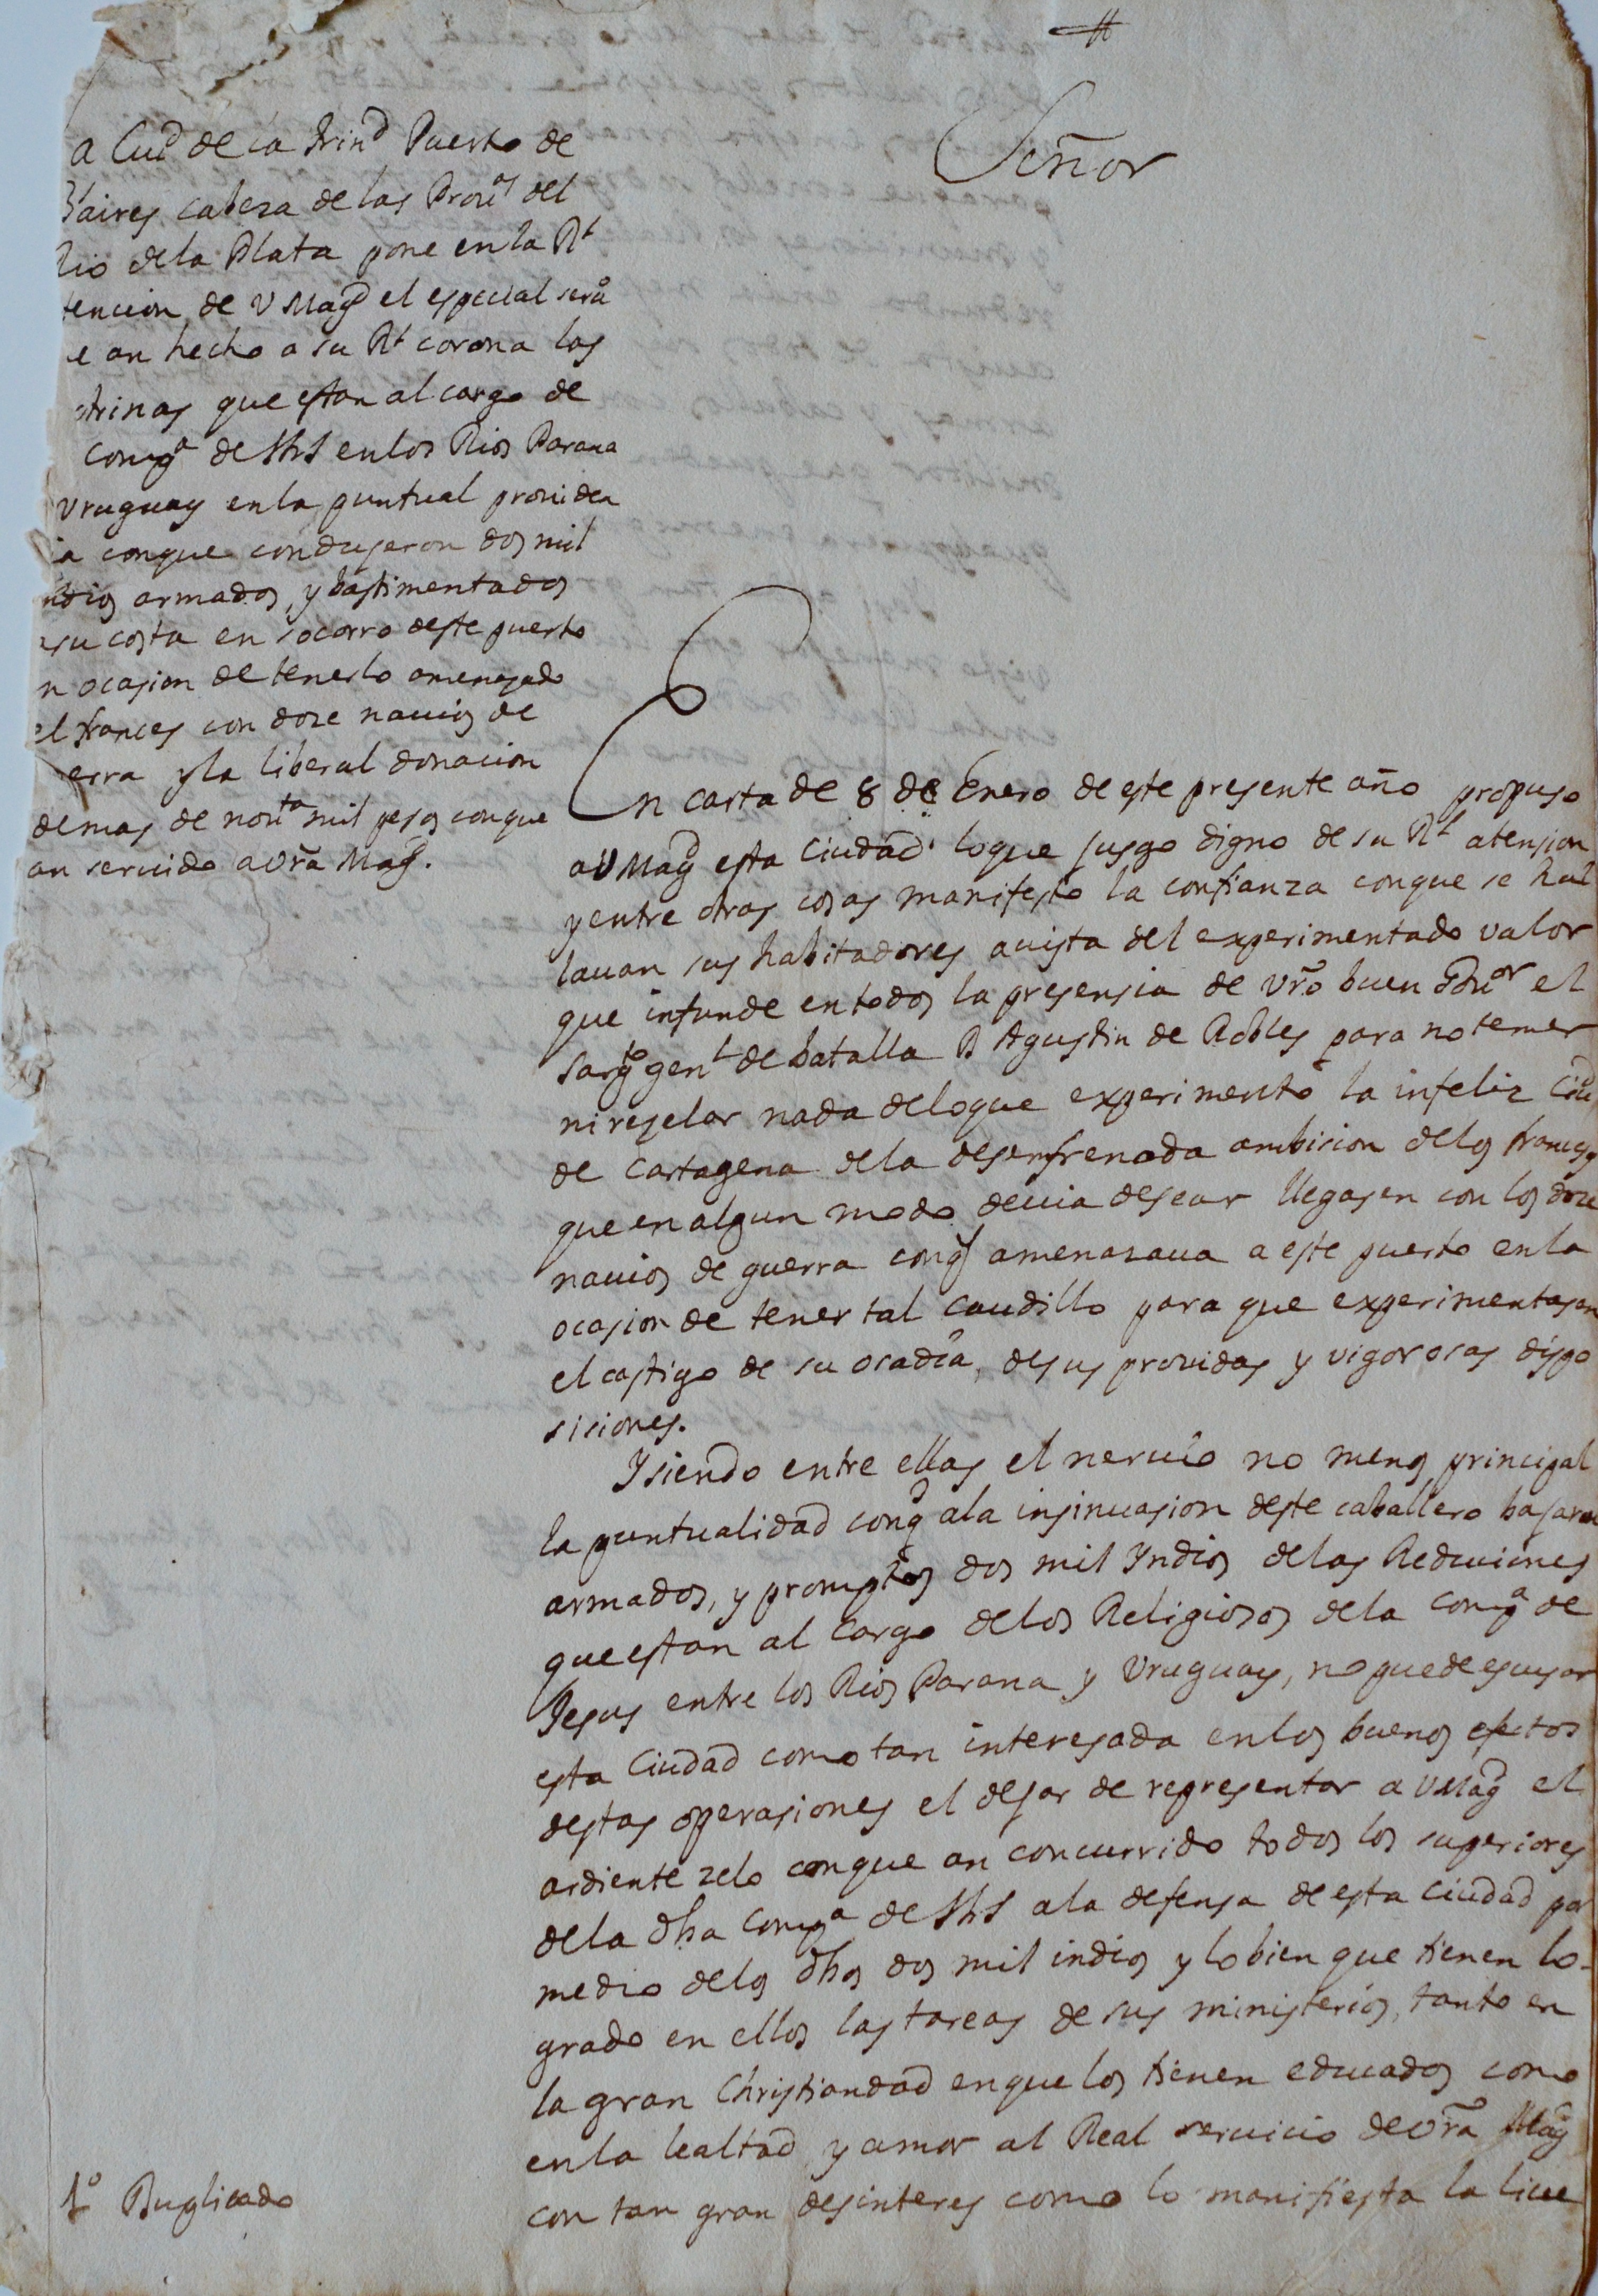 Señor
a Ciud de la Trind Puerto de
Baires cabesa de las Prouas del
Rio de la Plata pone en la Rl
tencion de V Magd el especial seruo
e an hecho a su Rl corona las
trinas que estan al cargo de
compa de Jhs en los Rios Parana
Vruguay en la puntual prouiden
ia conque condujeron dos mil
ndios armados, y bastimentados
asu costa en socorro deste puerto
n ocasion de tenerlo amenasado
el frances con dose nauios de
erra y la liberal donacion
de mas de nouta mil pesos conque
an seruido a vra Magd.
En carta de 8 de Enero de este presente año propuso
a V Magd esta Ciudad loque jusgo digno de su Rl atension
y entre otras cosas manifesto la confianza conque se hal
lauan sus habitadores auista del experimentado valor
que infunde en todos la presensia de vro buen Gouor el
sargto genl de batalla D Agustin de Robles para no temer
ni reselar nada deloque experimento la infeliz Ciud
de Cartagena dela desenfrenada ambision delos franceses
que en algun modo deuia desear llegasen con los dose
nauios de guerra conq amenasaua a este puerto en la
ocasion de tener tal caudillo para que experimentasen
el castigo de su osadia, desus prouidas y vigorosas dispo
sisiones.
Y siendo entre ellas el neruio no menos principal
la puntualidad conq ala insinuasion deste caballero bajaron
armados, y promptos dos mil Yndios delas Reduciones
que estan al Cargo delos Religiosos dela Compa de
Jesus entre los Rios Parana y Vruguay, no puede escusar
esta Ciudad como tan interesada enlos buenos efectos
destas operasiones el dejar de representar a V Magd el
ardiente zelo conque an concurrido todos los superiores
dela dha Compa de Jhs ala defensa de esta Ciudad por
medio delos dhos dos mil indios y lo bien que tienen lo-
grado en ellos las tareas de sus ministerios, tanto en
la gran Christiandad enque los tienen educados como
en la lealtad y amor al Real seruicio de vra Magd
con tan gran desinteres como lo manifiesta la libe
1o Duplicado